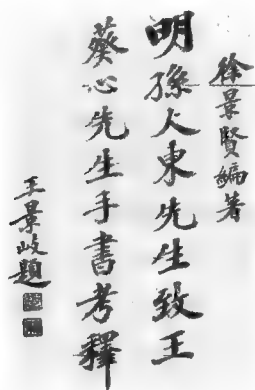 徐景賢編著
明孫火東先生致王
葵心先生手書考釋
王景岐題